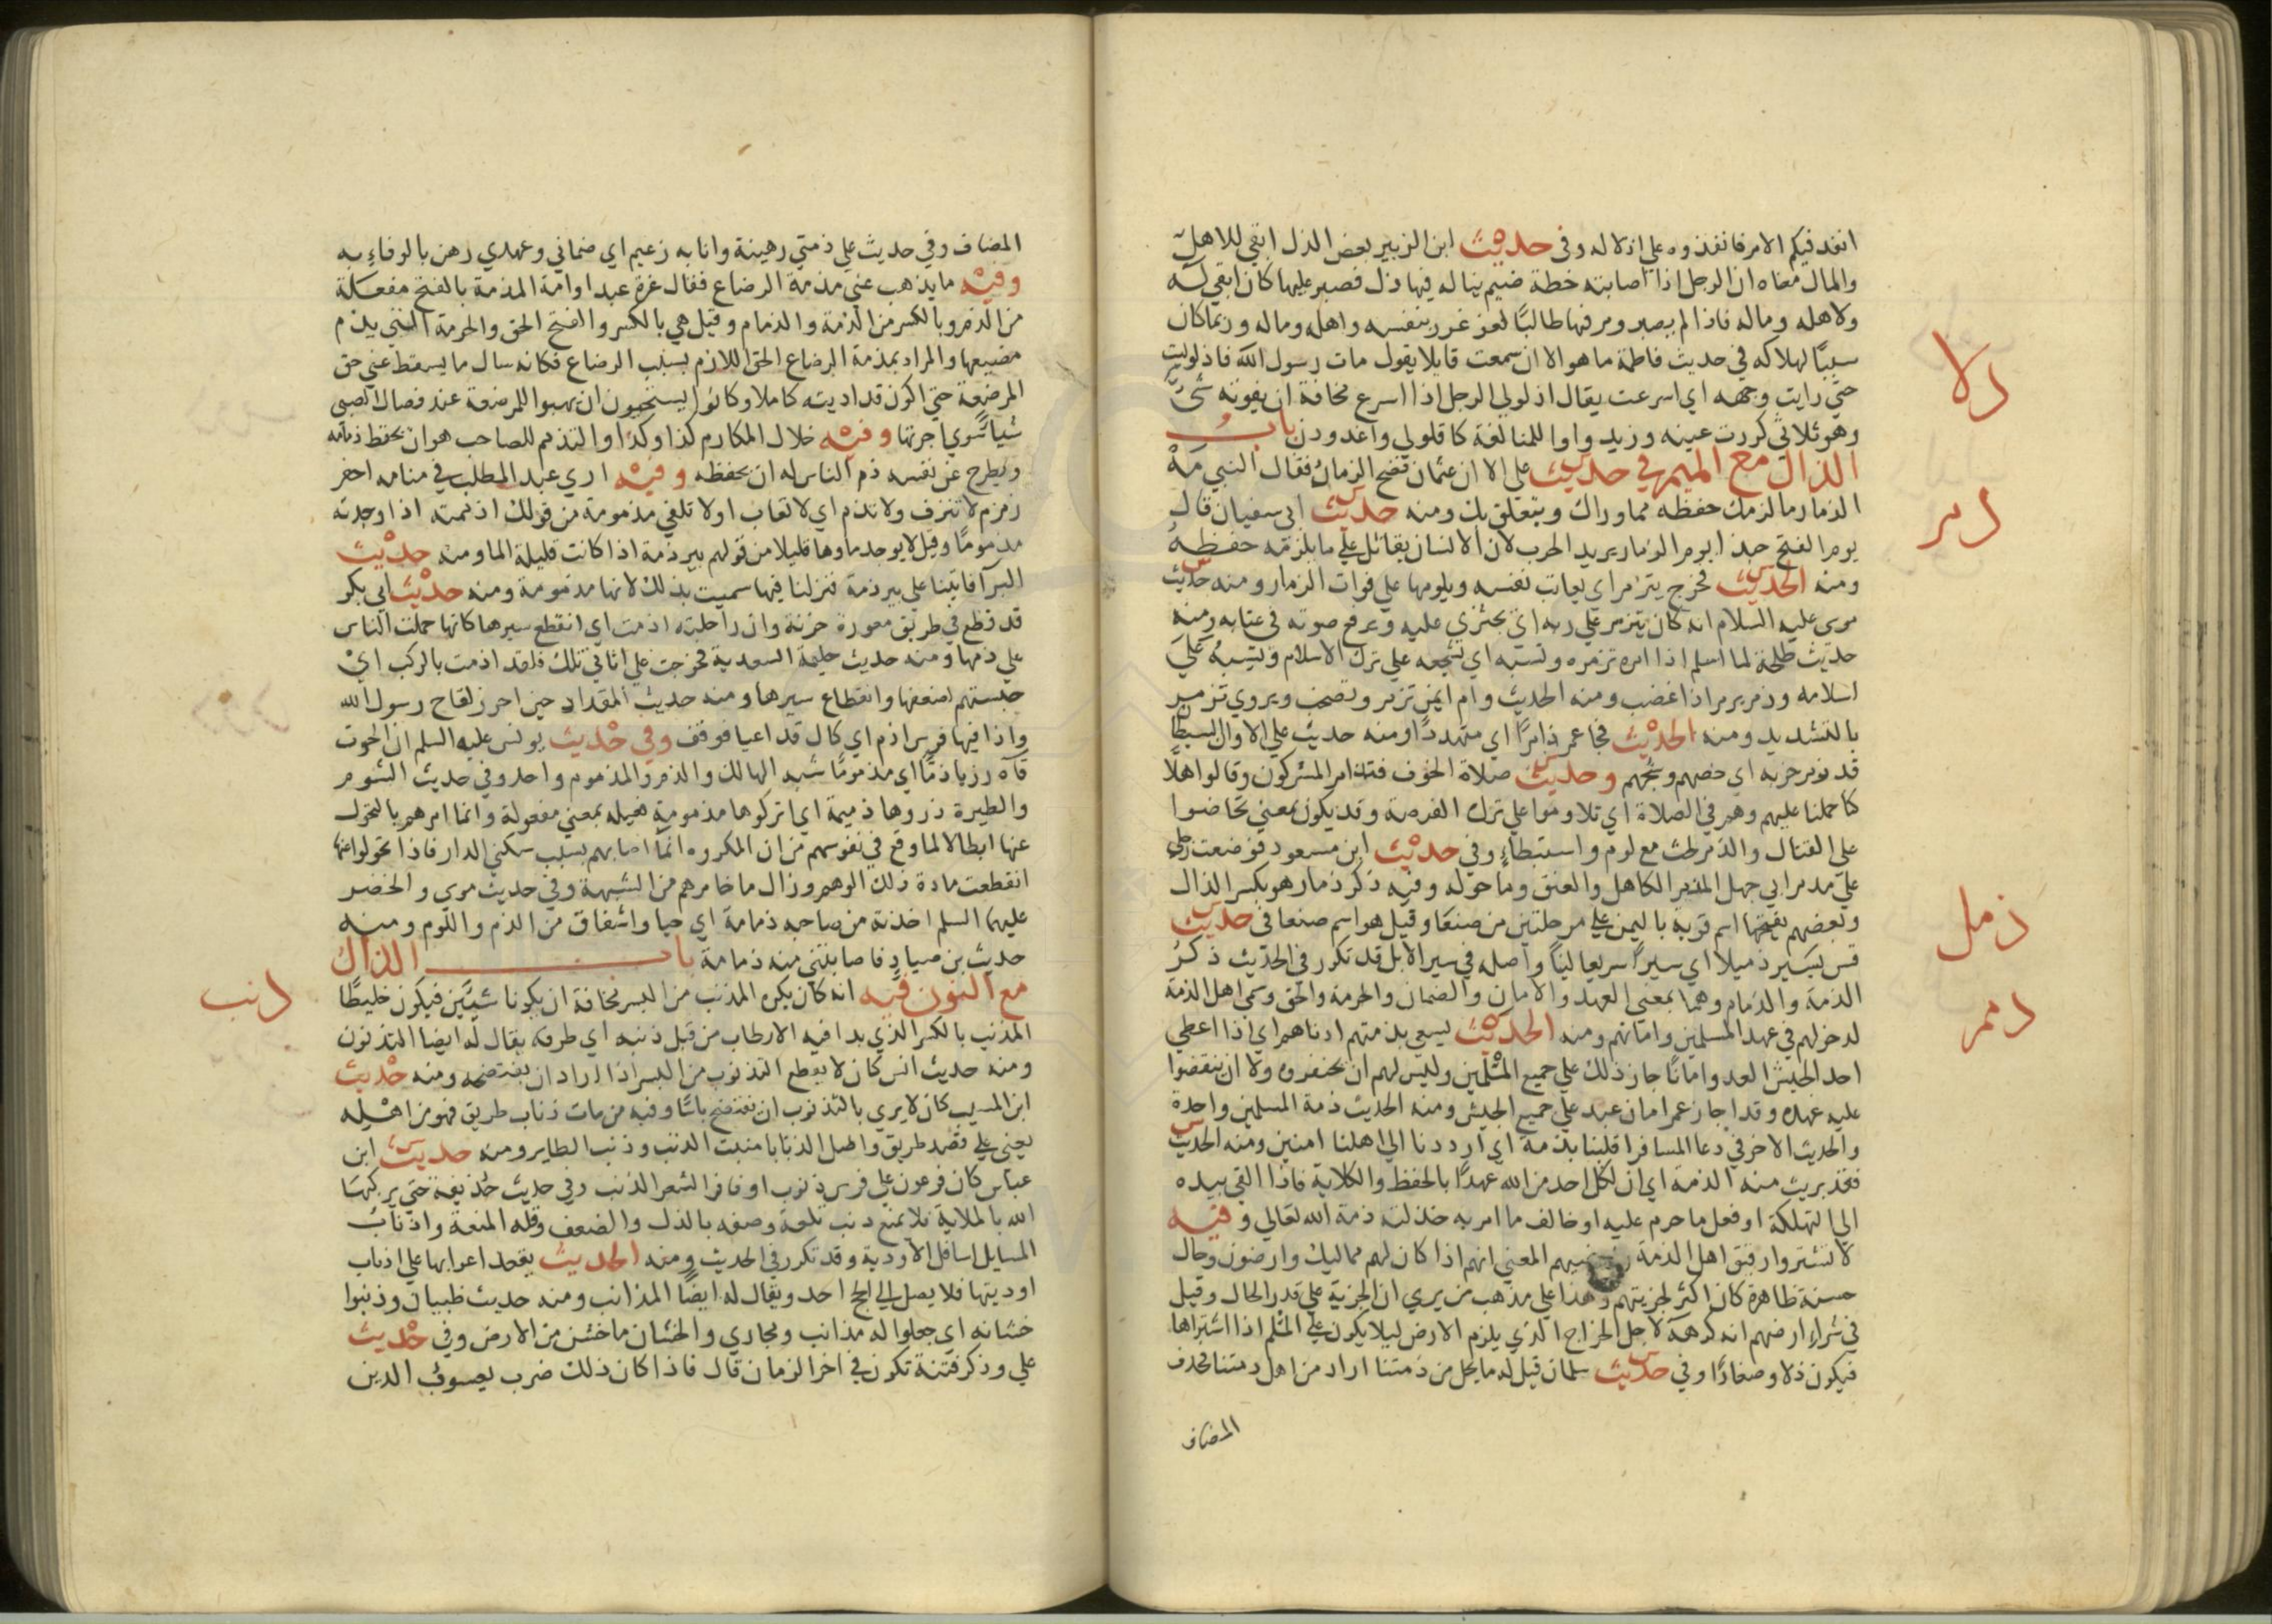 انفد فيكم الامر فانفذوه علي اذلاله وفي حديث ابن الزبير بعض الذل ابقي للاهل
والمال معناه ان الرجل اذا اصابته خطة ضيم يناله فيها ذل فصبر عليها كان ابقي له
ولاهله وماله فاذا لم يصبر ومر فيها طالبًا للعز غرر بنفسه واهله وماله وربما كان
سببًا لهلاكه في حديث فاطمة ما هو الا ان سمعت قايلا يقول مات رسول الله فاذلوليت
حتي رايت وجهه اي اسرعت يقال اذلولي الرجل اذا اسرع مخافة ان يفوته شئ
وهو ثلاثي كررت عينه وزيد واوا للمبالغة كاقلولي واغدودن باب
الذال مع الميم في حديث علي الا ان عثمان فضح الزمار فقال النبي مه
الذمار ما لزمك حفظه مما وراك ويتعلق بك ومنه حديث ابي سفيان قال
يوم الفتح حبذا يوم الزمار يريد الحرب لان الانسان يقاتل علي ما يلزمه حفظه
ومنه الحديث فخرج يتزمر اي يعاتب نفسه ويلومها علي فوات الزمار ومنه حديث
موسي عليه السلام انه كان يتزمر علي ربه اي يجتري عليه ويرفع صوته في عتابه ومنه
حديث طلحة لما اسلم اذا امه تزمره وتسبه اي تشجعه علي ترك الاسلام وتسبه علي
اسلامه وذمر يرمر اذا غضب ومنه الحديث وام ايمن تزمر وتصخب ويروي تزمر
بالتشديد ومنه الحديث فجا عمر ذامرًا اي متهددًا ومنه حديث علي الا وان الشيطان
قد ذمر حزبه اي حضهم وشجعهم وحديث صلاة الخوف فتذامر المشركون وقالوا هلا
كنا حملنا عليهم وهم في الصلاة اي تلاوموا علي ترك الفرصة وقد يكون بمعني تحاضوا
علي القتال والذمر الحث مع لوم واستبطاء وفي حديث ابن مسعود فوضعت رجلي
علي مذمر ابي جهل المذمر الكاهل والعنق وما حوله وفيه ذكر ذمار هو بكسر الذال
وبعضهم يفتحها اسم قرية باليمن علي مرحلتين من صنعا وقيل هو اسم صنعا في حديث
قس يسير ذميلا اي سيرًا سريعا لينًا واصله في سير الابل قد تكرر في الحديث ذكر
الذمة والذمام وهما بمعني العهد والامان والضمان والحرمة والحق وسمي اهل الذمة
لدخولهم في عهد المسلمين وامانهم ومنه الحديث يسعي بذمتهم ادناهم اي اذا اعطي
احد الجيش العدو امانًا جاز ذلك علي جميع المسلمين وليس لهم ان يخفروه ولا ان ينقضوا
عليه عهده وقد اجاز عمر امان عبد علي جميع الجيش ومنه الحديث ذمة المسلمين واحدة
والحديث الاخر في دعا المسافر اقلبنا بذمة اي ارددنا الي اهلنا امنين ومنه الحديث
فقد بريت منه الذمة اي ان لكل احد من الله عهدًا بالحفظ والكلاية فاذا القي بيده
الي التهلكة او فعل ما حرم عليه او خالف ما امر به خذلته ذمة الله تعالي وفيه
لا تشتروا رقيق اهل الذمة المعني انهم اذا كان لهم مماليك وارضون وحال
حسنة ظاهرة كان اكثر لجزيتهم وهذا علي مذهب من يري ان الجزية علي قدر الحال وقيل
في شراء ارضهم انه كرهه لاجل الخراج الذي يلزم الارض ليلا يكون علي المسلم اذا اشتراها
فيكون ذلا وصغارًا وفي حديث سلمان قيل له ما يحل من ذمتنا اراد من اهل ذمتنا فحذف
المضاف
دلا
دمر
ذمل
دمم
المضاف وفي حديث علي ذمتي رهينة وانا به زعيم اي ضماني وعهدي رهن بالوفاء به
وفيه ما يذهب عني مذمة الرضاع فقال غرة عبد او امة المذمة بالفتح مفعلة
من الذم وبالكسر من الذمة والذمام وقيل هي بالكسر والفتح الحق والحرمة التي يذم
مضيعها والمراد بمذمة الرضاع الحق اللازم بسبب الرضاع فكانه سال ما يسقط عني حق
المرضعة حتي اكون قد اديته كاملا وكانوا يستحبون ان يهبوا للمرضعة عند فصال الصبي
شيا سوي اجرتها وفيه خلال المكارم كذا وكذا والتذمم للصاحب هو ان يحفظ ذمامه
ويطرح عن نفسه ذم الناس له ان يحفظه وفيه اري عبد المطلب في منامه احفر
زمزم لا تنزف ولا تذم اي لا تعاب او لا تلفي مذمومة من قولك اذممته اذا وجدته
مذمومًا وقيل لا يوجد ماوها قليلا من قولهم بير ذمة اذا كانت قليلة الما ومنه حديث
البرآ فاتينا علي بير ذمة فنزلنا فيها سميت بذلك لانها مذمومة ومنه حديث ابي بكر
قد طلع في طريق معورة حزنة وان راحلته اذمت اي انقطع سيرها كانها حملت الناس
علي ذمها ومنه حديث حليمة السعدية فخرجت علي اتاني تلك فلقد اذمت بالركب اي
حبستهم لضعفها وانقطاع سيرها ومنه حديث المقداد حين احرز لقاح رسول الله
واذا فيها فرس اذم اي كال قد اعيا فوقف وفي حديث يونس عليه السلم ان الحوت
قآه رزيا ذمًّا اي مذمومًا شبه الهالك والذم والمذموم واحد وفي حديث الشوم
والطيرة ذروها ذميمة اي اتركوها مذمومة فعيلة بمعني مفعولة وانما امرهم بالتحول
عنها ابطالا لما وقع في نفوسهم من ان المكروه انما اصابهم بسبب سكني الدار فاذا تحولوا عنها
انقطعت مادة ذلك الوهم وزال ما خامرهم من الشبهة وفي حديث موسي والخضر
عليهما السلم اخذته من صاحبه ذمامة اي حيا واشفاق من الذم واللوم ومنه
حديث بن صياد فاصابتني منه ذمامة باب الذال
مع النون فيه انه كان يكره المذنب من البسر مخافة ان يكونا شيئين فيكون خليطًا
المذنب بالكسر الذي بدا فيه الارطاب من قبل ذنبه اي طرفه يقال له ايضا التذنون
ومنه حديث انس كان لا يقطع التذنوب من البسر اذا اراد ان يفتضخه ومنه حديث
ابن المسيب كان لا يري بالتذنوب ان يفتضخ باسًا وفيه من مات ذناب طريق فهو من اهله
يعني علي قصد طريق واصل الذنابا منبت الذنب وذنب الطاير ومنه حديث ابن
عباس كان فرعون علي فرس ذنوب اي وافر الشعر الذنب وفي حديث حذيفة حتي يركبها
الله بالملايكة فلا يمنع ذنب تلعة وصفه بالذل والضعف وقلة المنعة واذناب
المسايل اسافل الاودية وقد تكرر في الحديث ومنه الحديث يقعد اعرابها علي اذناب
اوديتها فلا يصل الي الحج احد ويقال له ايضًا المذانب ومنه حديث ظبيان وذنبوا
خشانه اي جعلوا له مذانب ومجاري والخشان ما خشن من الارض وفي حديث
علي وذكر فتنة تكون في اخر الزمان قال فاذا كان ذلك ضرب يعسوب الدين
دنب